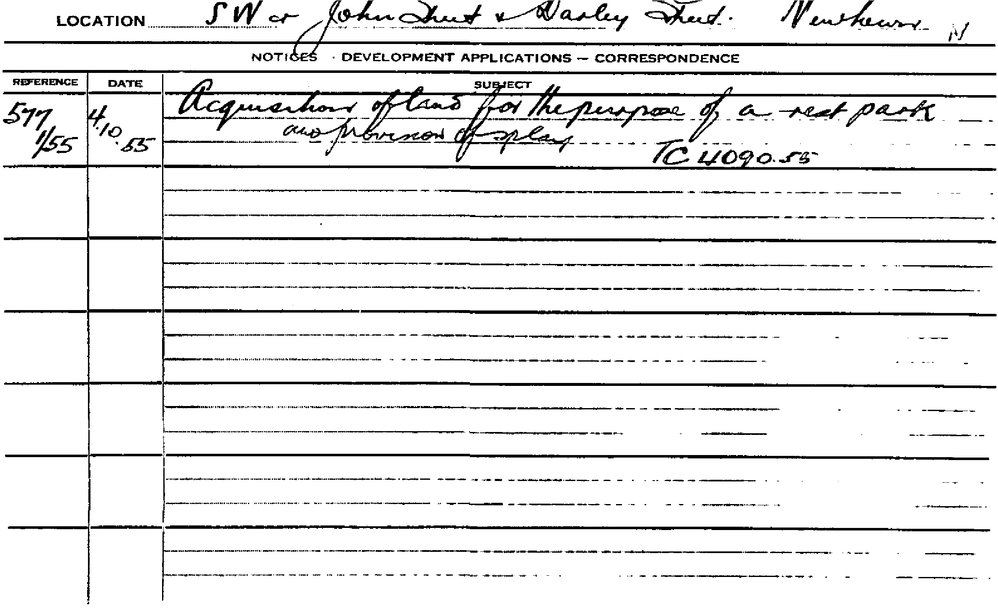 LOCATION SW cr John Street & Darley Street. Newtown N
NOTICES · DEVELOPMENT APPLICATIONS — CORRESPONDENCE
REFERENCE DATE SUBJECT
577 4.10 Acquisition of land for the purpose of a rest park
1/55 .55 and provision of splay
TC 4090.55